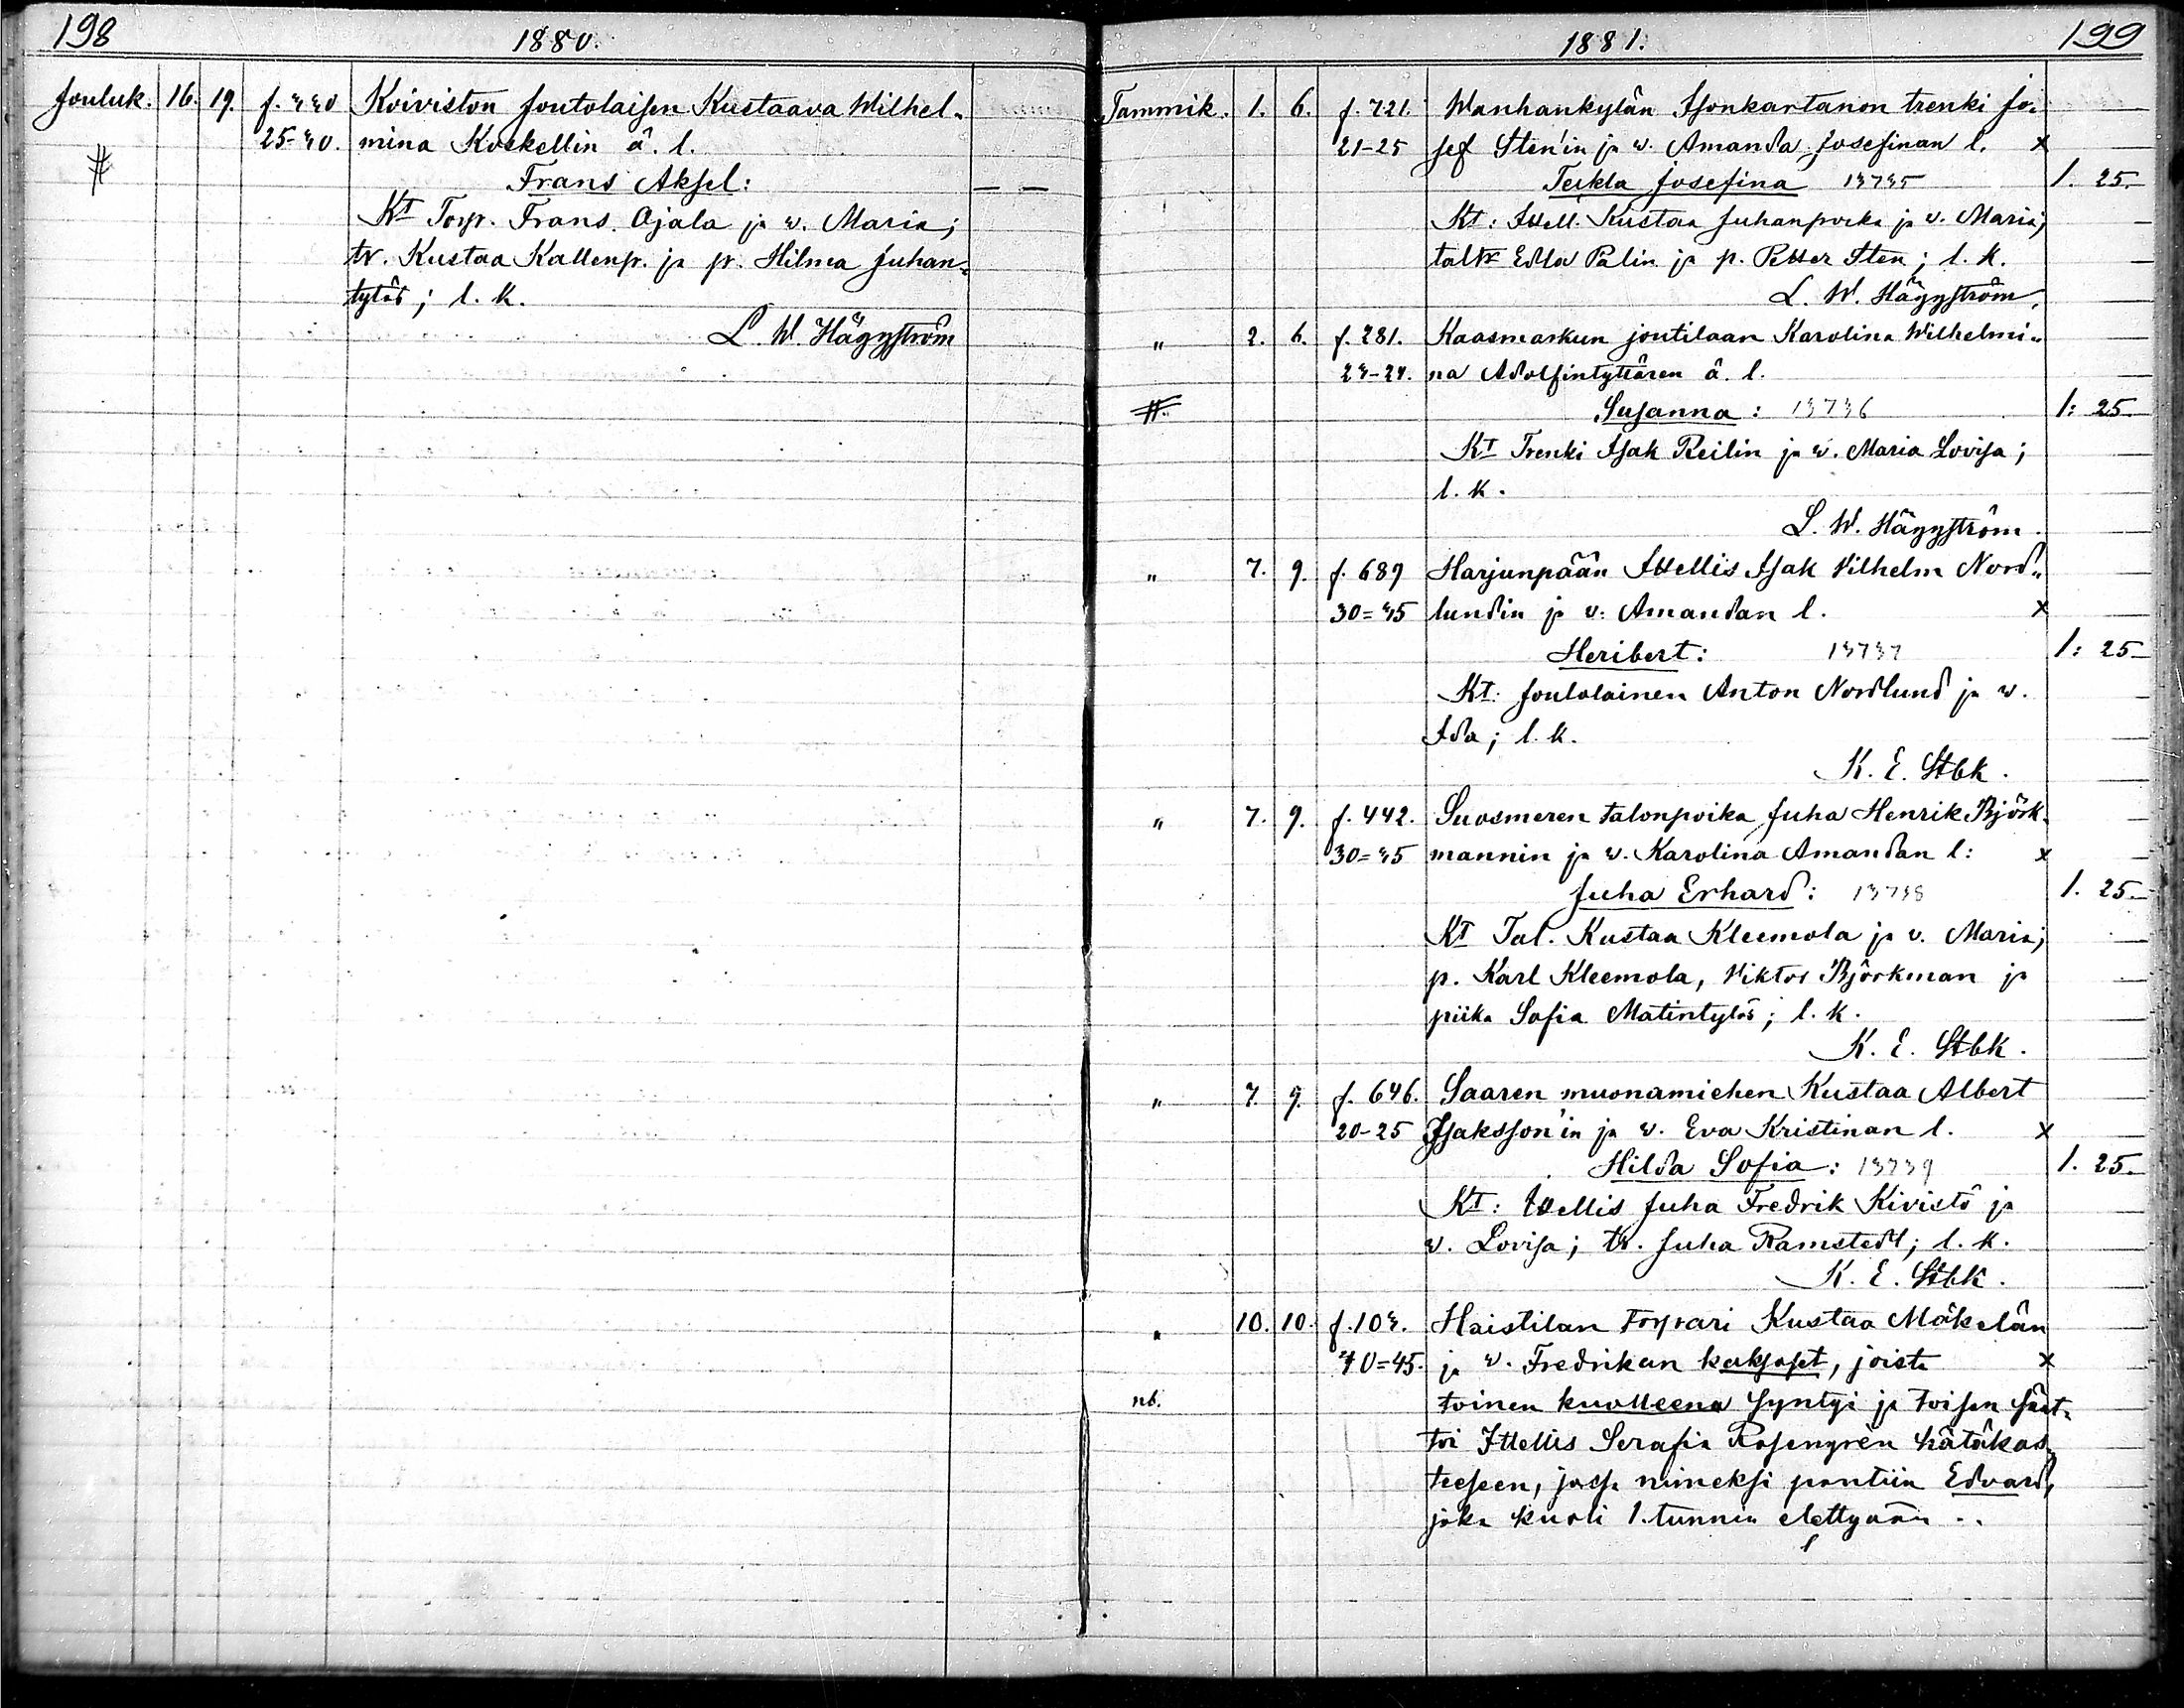 198
1880.
Jouluk. 16. 19. f. 330 Koiviston Joutolaisen Kustaava Wilhel-
25-30. mina Koskellin ä. l.
Frans Aksel: — —
Kt Torp. Frans Ojala ja v. Maria;
tr. Kustaa Kallenp. ja p. Hilma Juhan-
tytär; l. k.
L. W. Häggström
1881.
199
Tammik. 1. 6. f. 721. Wanhankylän Isonkartanon trenki Jo-
21-25 sef Sten'in ja v. Amanda Josefinan l. x
Teckla Josefina 13735 1. 25.
Kt: Itsell. Kustaa Juhanpoika ja v. Maria;
taltr Edla Palin ja p. Petter Sten; l. k.
L. W. Häggström.
" 2. 6. f. 281. Kaasmarkun joutilaan Karolina Wilhelmi-
23-24. na Adolfintyttären ä. l.
#. Susanna: 13736 1: 25
Kt Trenki Isak Reilin ja v. Maria Lovisa;
l. k.
L. W. Häggström.
" 7. 9. f. 689 Harjunpään Itsellis Isak Vilhelm Nord-
30=35 lundin ja v: Amandan l. x
Heribert: 13737 1: 25
Kt: Joutolainen Anton Nordlund ja v.
Ida; l. k.
K. E. Stbk.
" 7. 9. f. 442. Suosmeren talonpoika Juha Henrik Björk-
30=35 mannin ja v. Karolina Amandan l: x
Juha Erhard: 13738 1. 25.
Kt Tal. Kustaa Kleemola ja v. Maria;
p. Karl Kleemola, Viktor Björkman ja
piika Sofia Matintytär; l. k.
K. E. Stbk.
" 7. 9. f. 646. Saaren muonamiehen Kustaa Albert
20-25 Isaksson'in ja v. Eva Kristinan l. x
Hilda Sofia: 13739 1. 25.
Kt: Itsellis Juha Fredrik Kivistö ja
v. Lovisa; tr. Juha Ramstedt; l. k.
K. E. Stbk.
" 10. 10. f. 103. Haistilan torpari Kustaa Mäkelän
40=45. ja v. Fredrikan kaksoset, joista x
nb. toinen kuolleena syntyi ja toisen saat-
toi Itsellis Serafia Rosengrén hätäkas-
teeseen, jossa nimeksi pantiin Edvard,
joka kuoli 1. tunnin elettyään